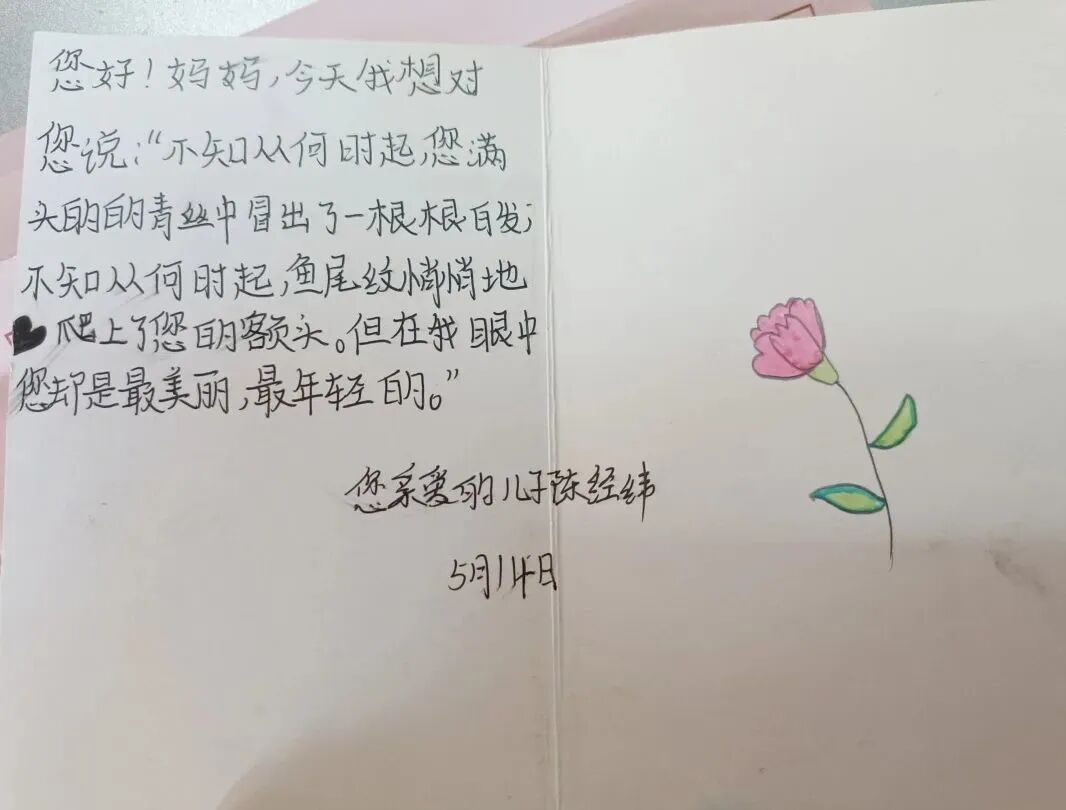 您好！妈妈，今天我想对
您说：“不知从何时起，您满
头的的青丝中冒出了一根根白发；
不知从何时起，鱼尾纹悄悄地
爬上了您的额头。但在我眼中
您却是最美丽，最年轻的。”
您亲爱的儿子陈经纬
5月14日